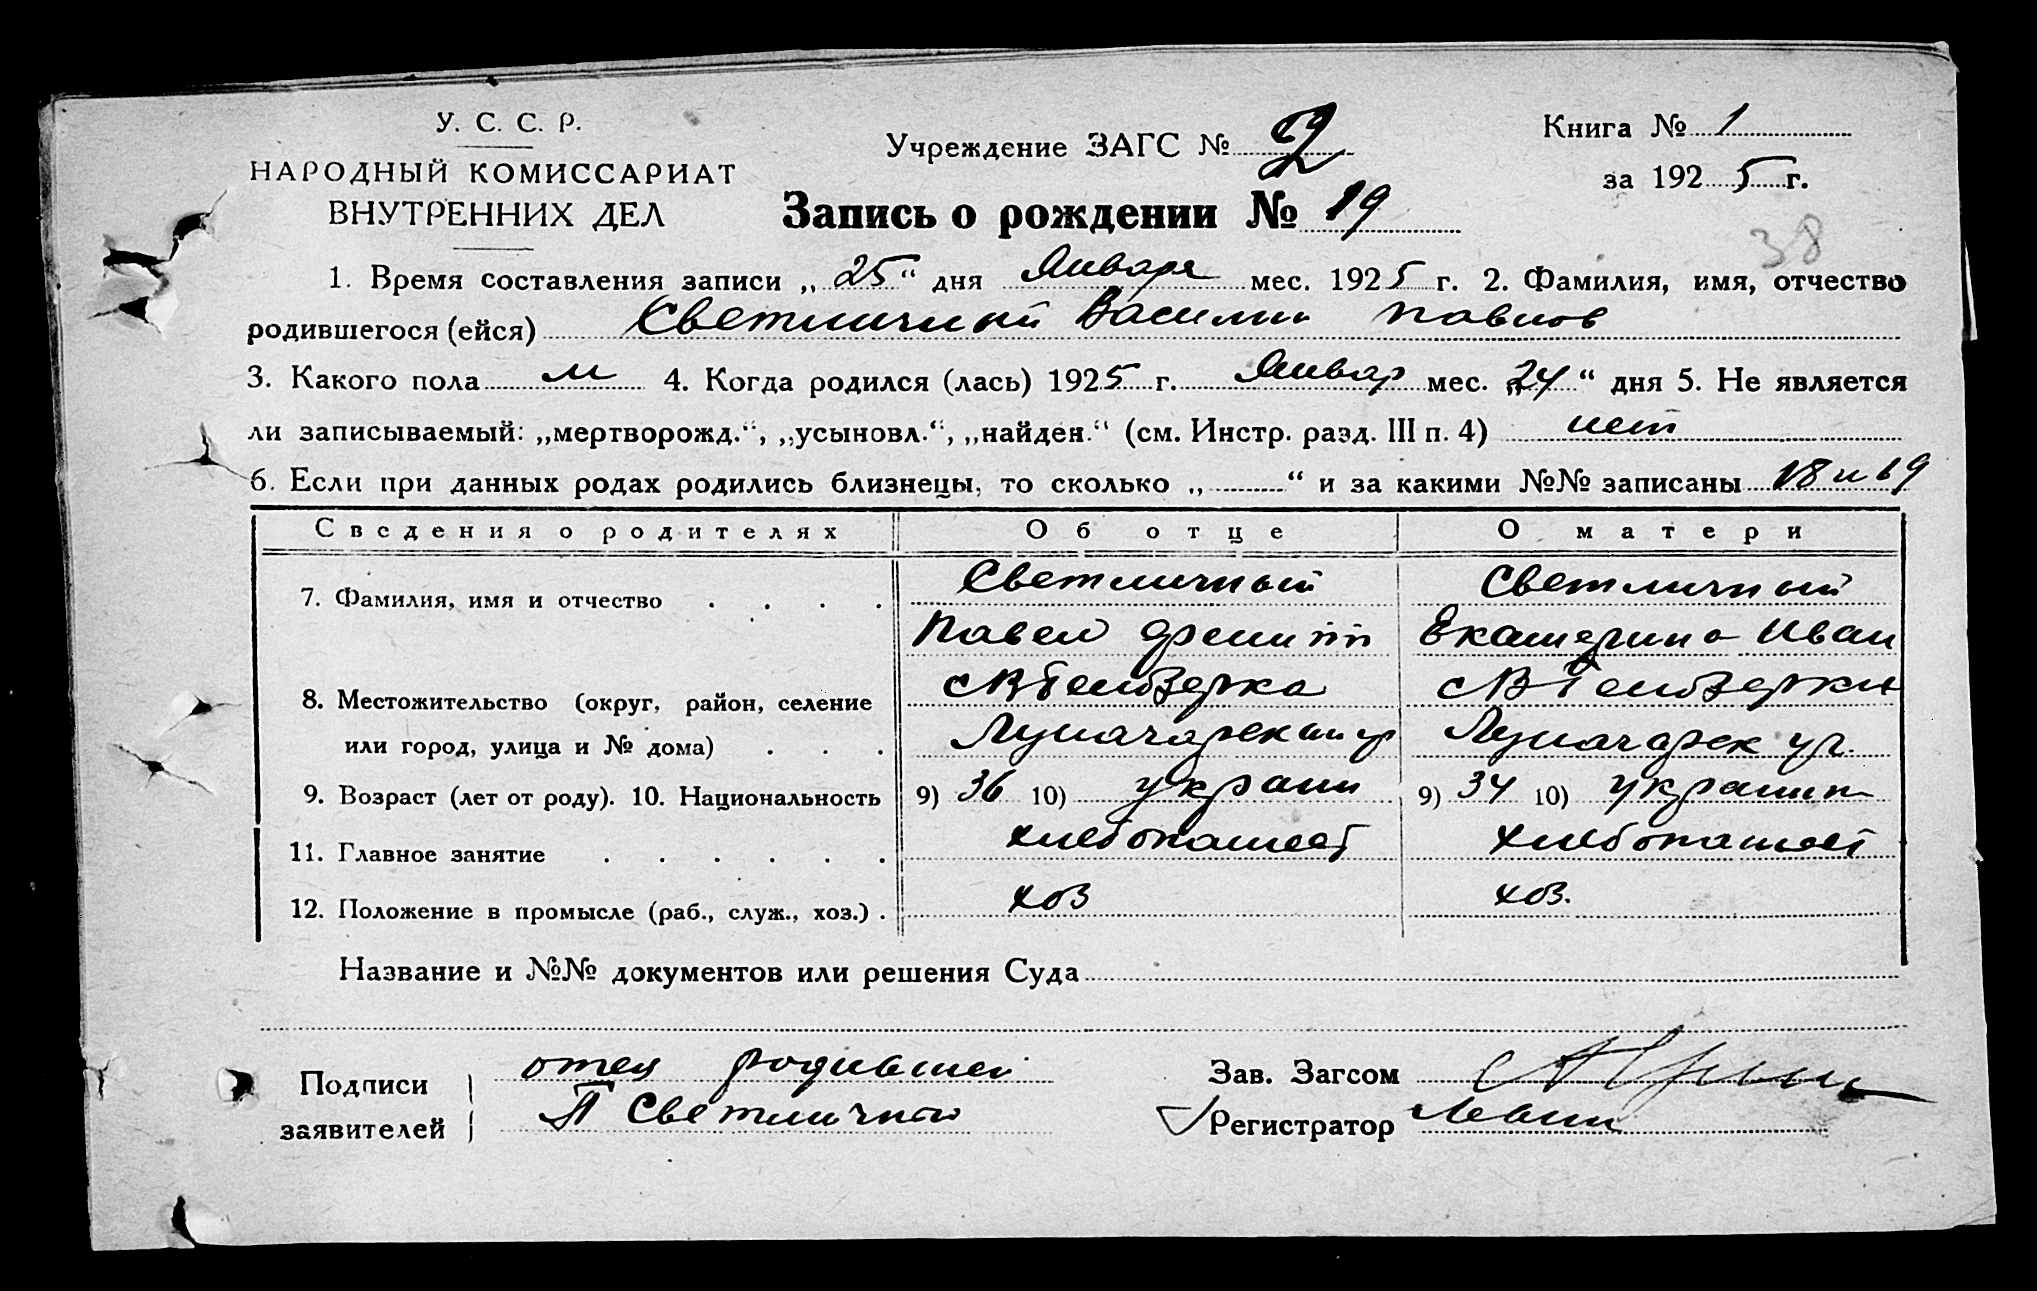 У. С. С. Р.
НАРОДНЫЙ КОМИССАРИАТ
ВНУТРЕННИХ ДЕЛ
Учреждение ЗАГС № 2
Книга № 1
за 1925 г.
Запись о рождении № 19
38
1. Время составления записи „25“ дня Января мес. 1925 г. 2. Фамилия, имя, отчество
родившегося (ейся) Светличный Василий Павлов
3. Какого пола м 4. Когда родился (лась) 1925 г. Январ мес. „24“ дня 5. Не является
ли записываемый: „мертворожд.“, „усыновл.“, „найден.“ (см. Инстр. разд. III п. 4) нет
6. Если при данных родах родились близнецы, то сколько „ “ и за какими №№ записаны 18 и 19
Сведения о родителях Об отце О матери
7. Фамилия, имя и отчество Светличный Светличный
Павел Филипп Екатерина Иван
8. Местожительство (округ, район, селение
или город, улица и № дома)
9. Возраст (лет от роду). 10. Национальность 9) 36 10) украин 9) 34 10) украин
11. Главное занятие хлебопашест хлебопашест
12. Положение в промысле (раб., служ., хоз.) хоз хоз.
Название и №№ документов или решения Суда
Подписи
заявителей
отец родившей
П Светличный
Зав. Загсом
Регистратор